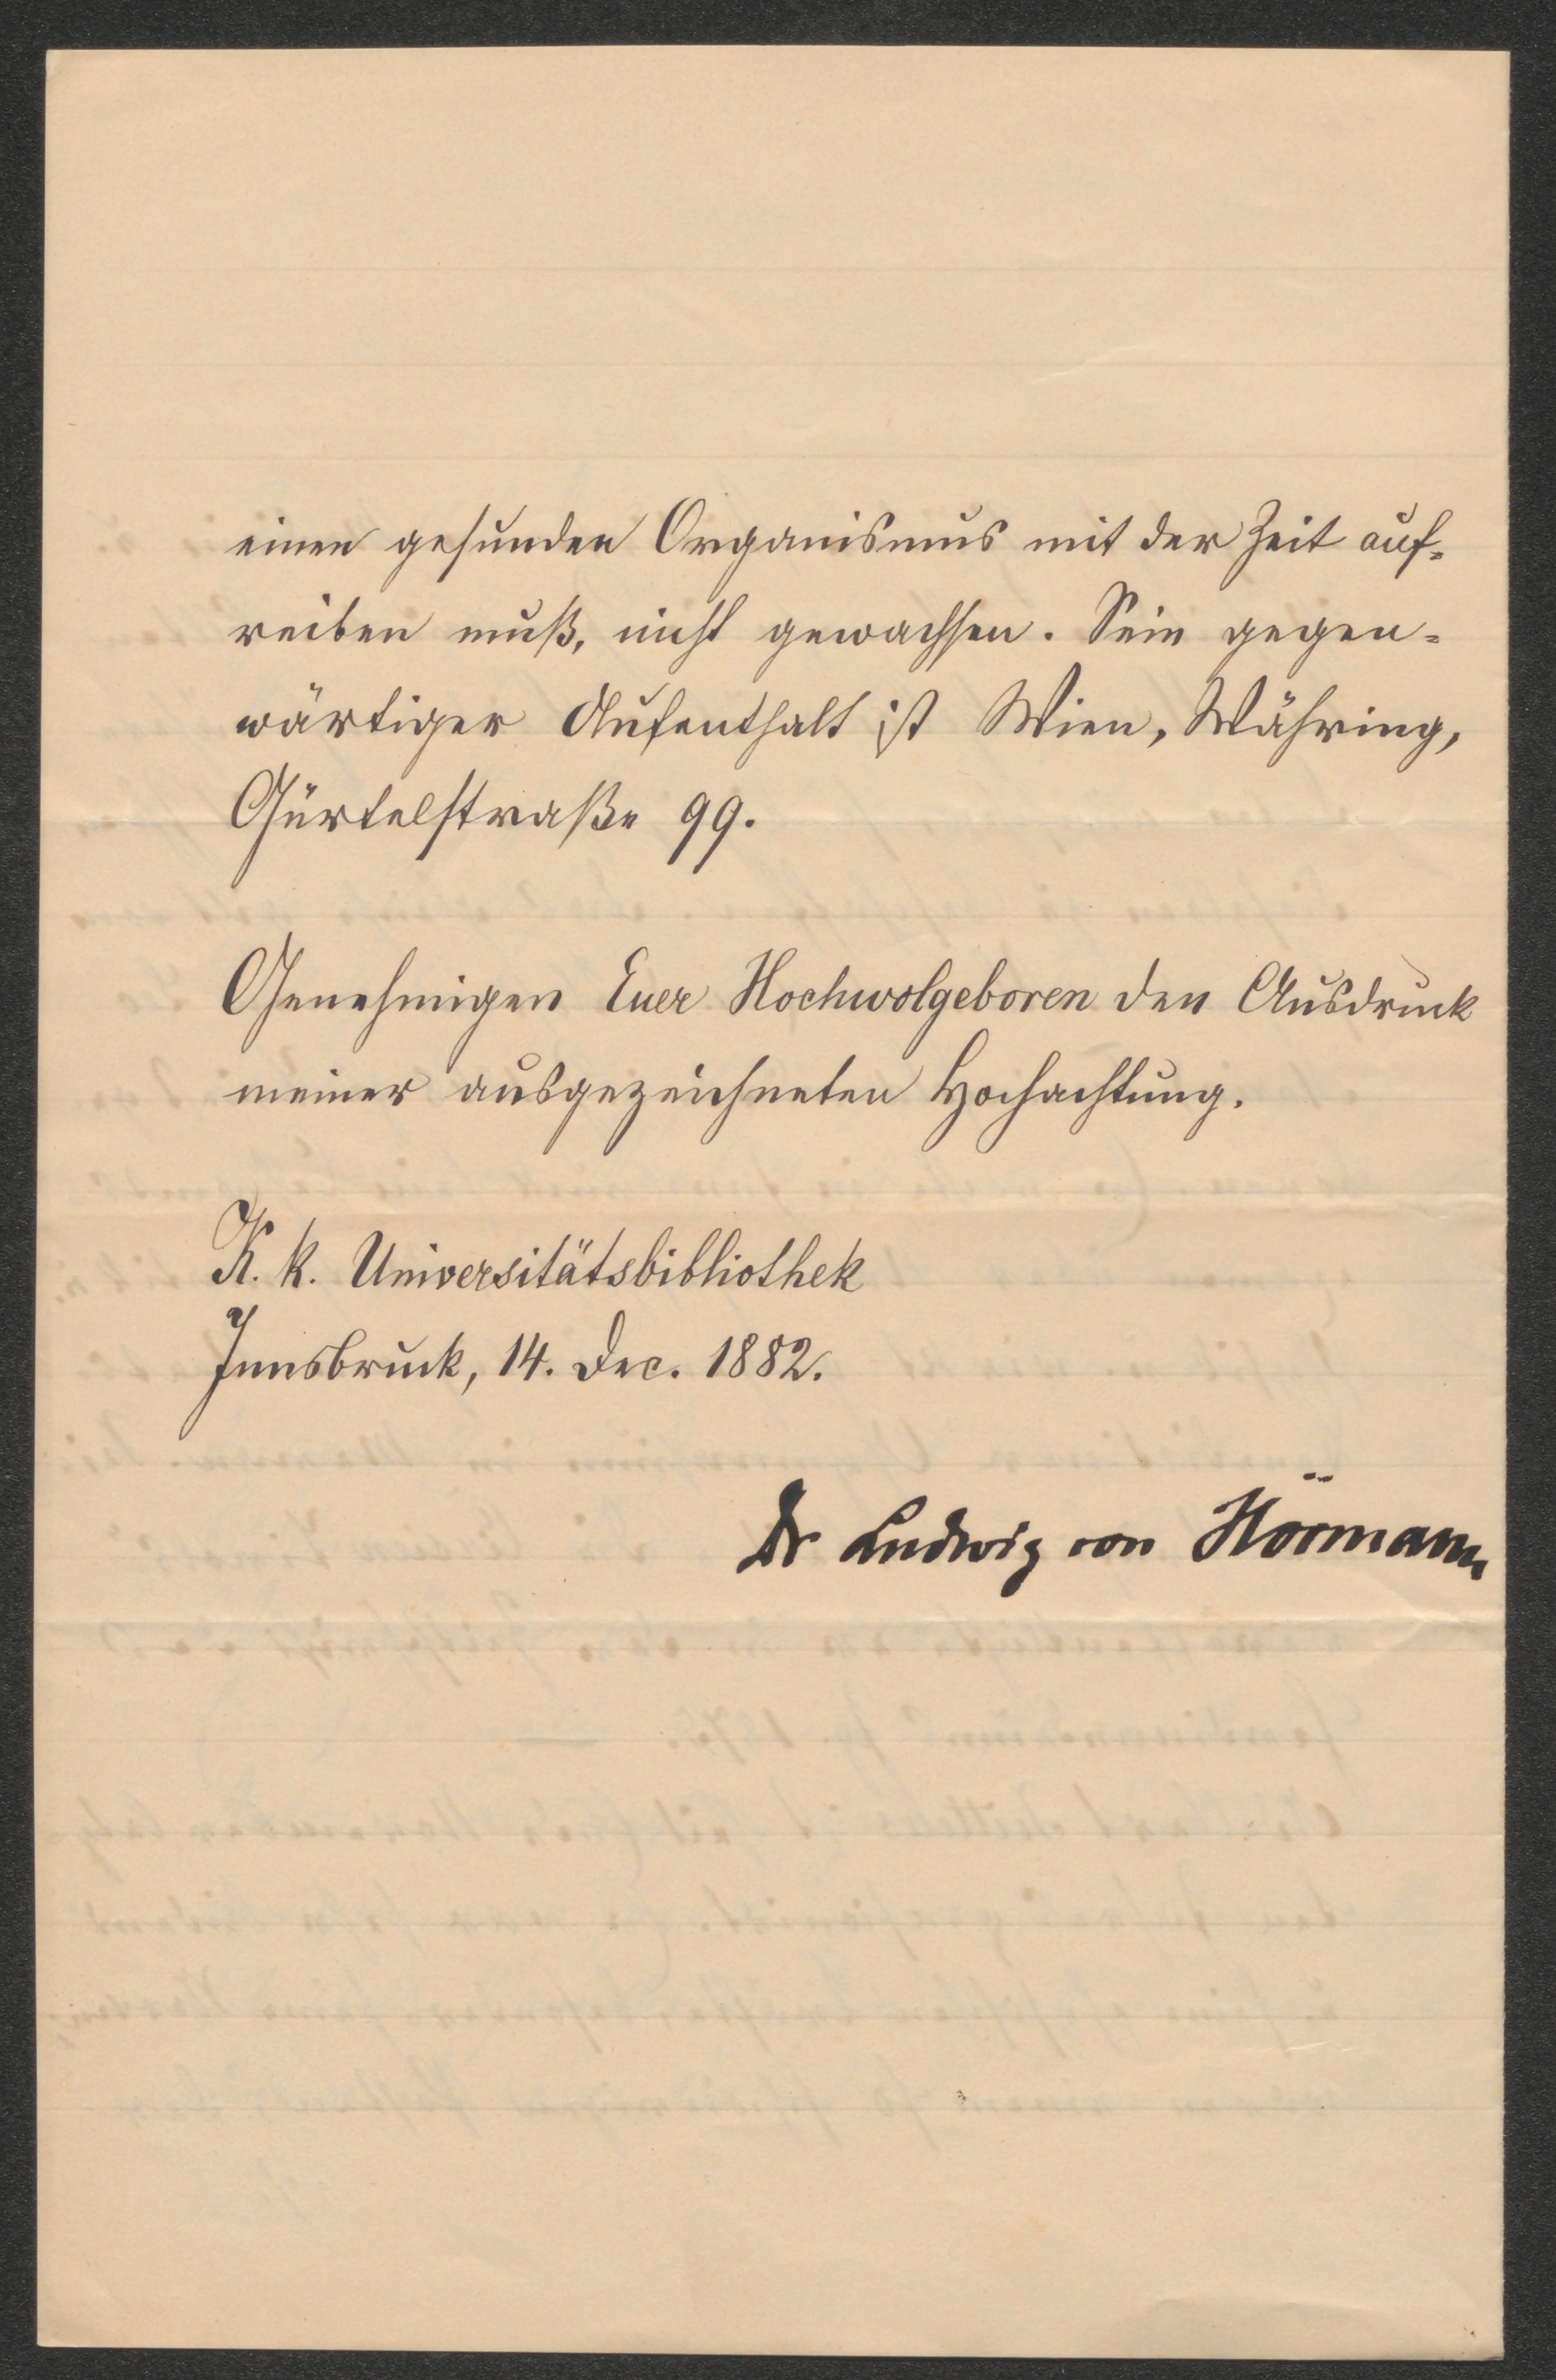 einen gesunden Organismus mit der Zeit auf-
reiben muß, nicht gewachsen. Sein gegen-
wärtiger Aufenthalt ist Wien, Währing,
Gürtelstraße 99.
Genehmigen Euer Hochwolgeboren den Ausdruck
meiner ausgezeichneten Hochachtung.
K. k. Universitätsbibliothek
Innsbruck, 14. Dec. 1882.
Dr Ludwig von Hörmann